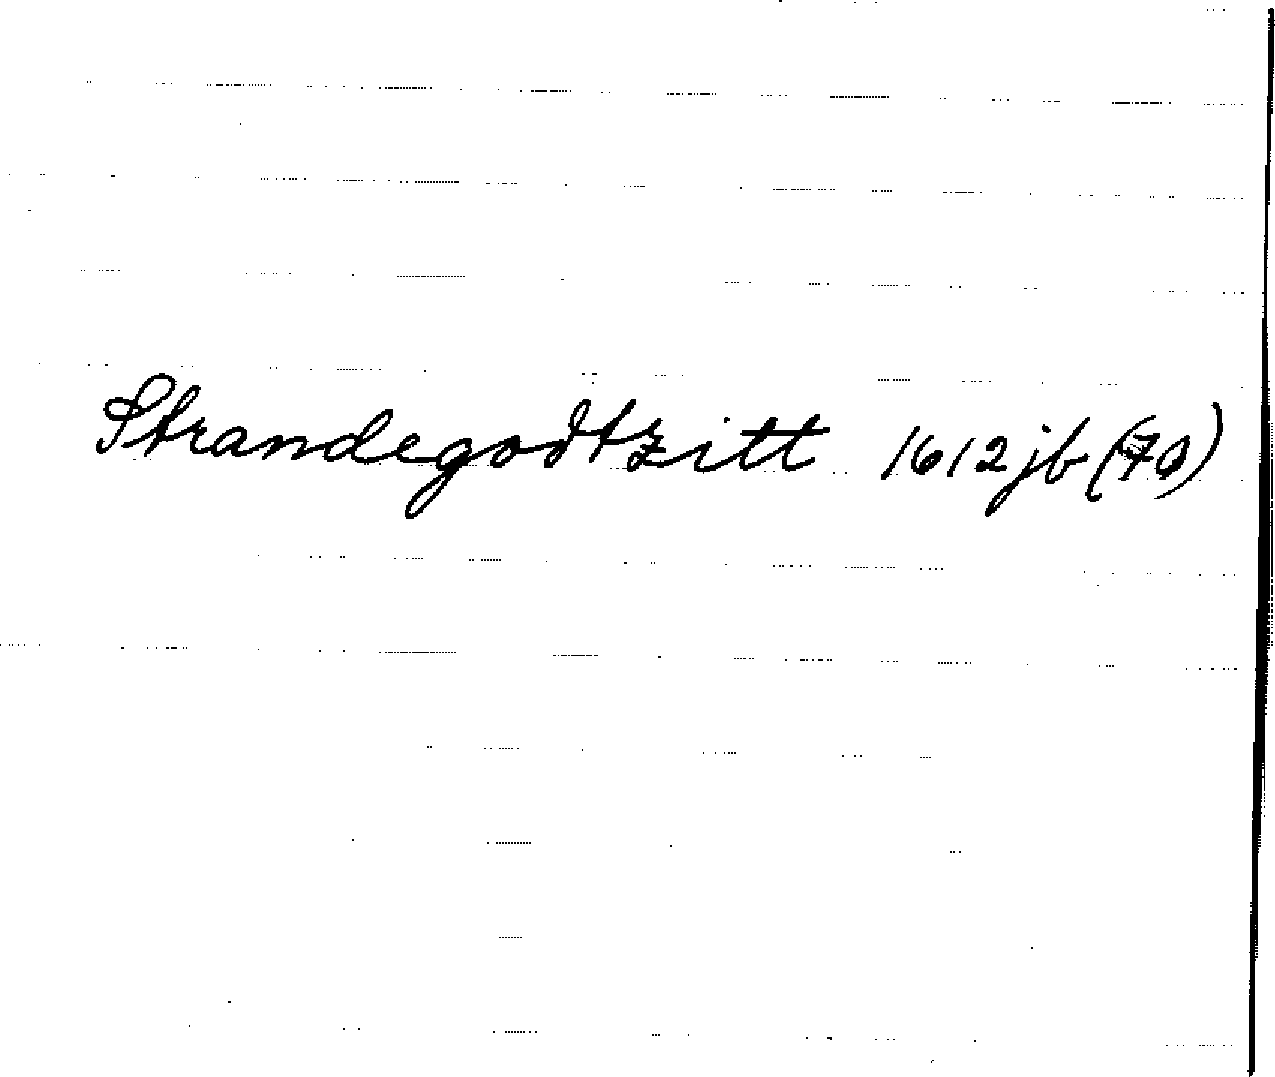 Strandegodtzitt 1612 jb (70)